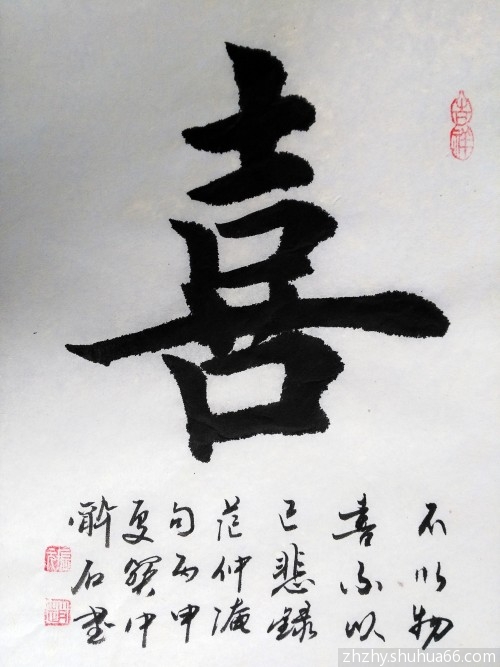 喜
吉祥
不以物
喜不以
己悲錄
范仲淹
句丙申
夏中
石書
zhzhyshuhua66.com